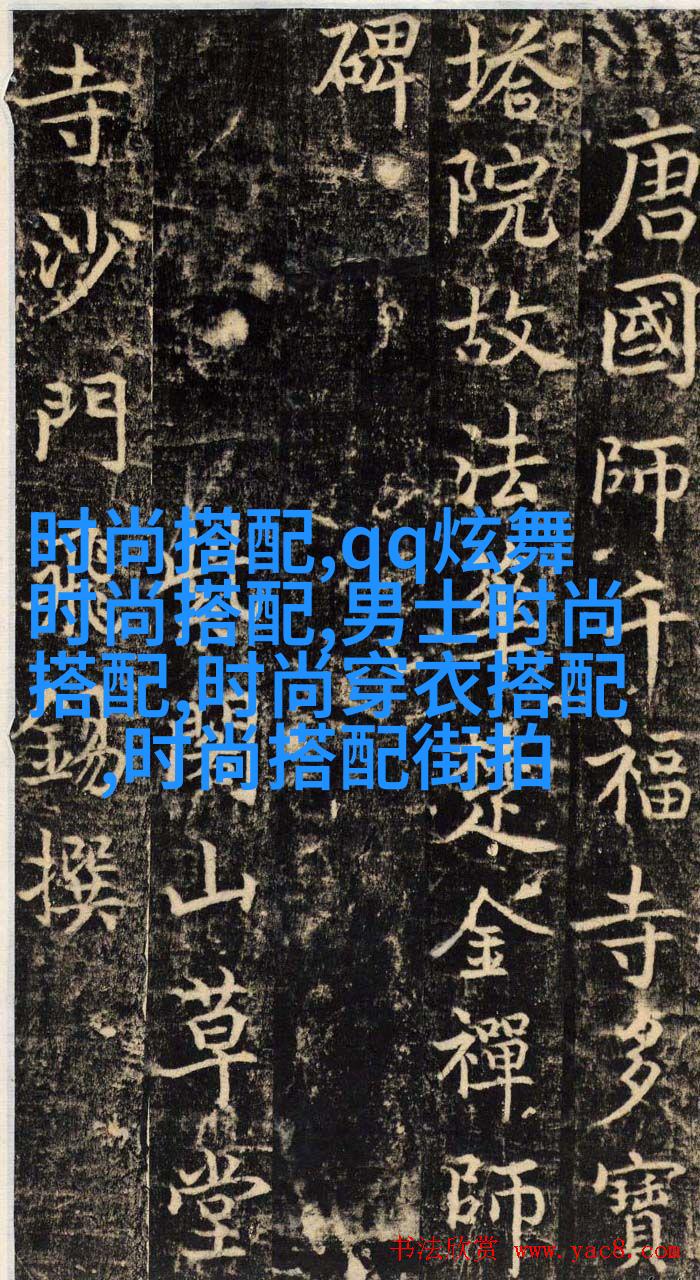 唐國師千福寺多寶
塔院故法華楚金禪師
碑
紫閣山草堂
寺沙門飛錫撰
时尚搭配,qq炫舞
时尚搭配,男士时尚
搭配,时尚穿衣搭配
,时尚搭配街拍
书法欣赏 www.yac8.com